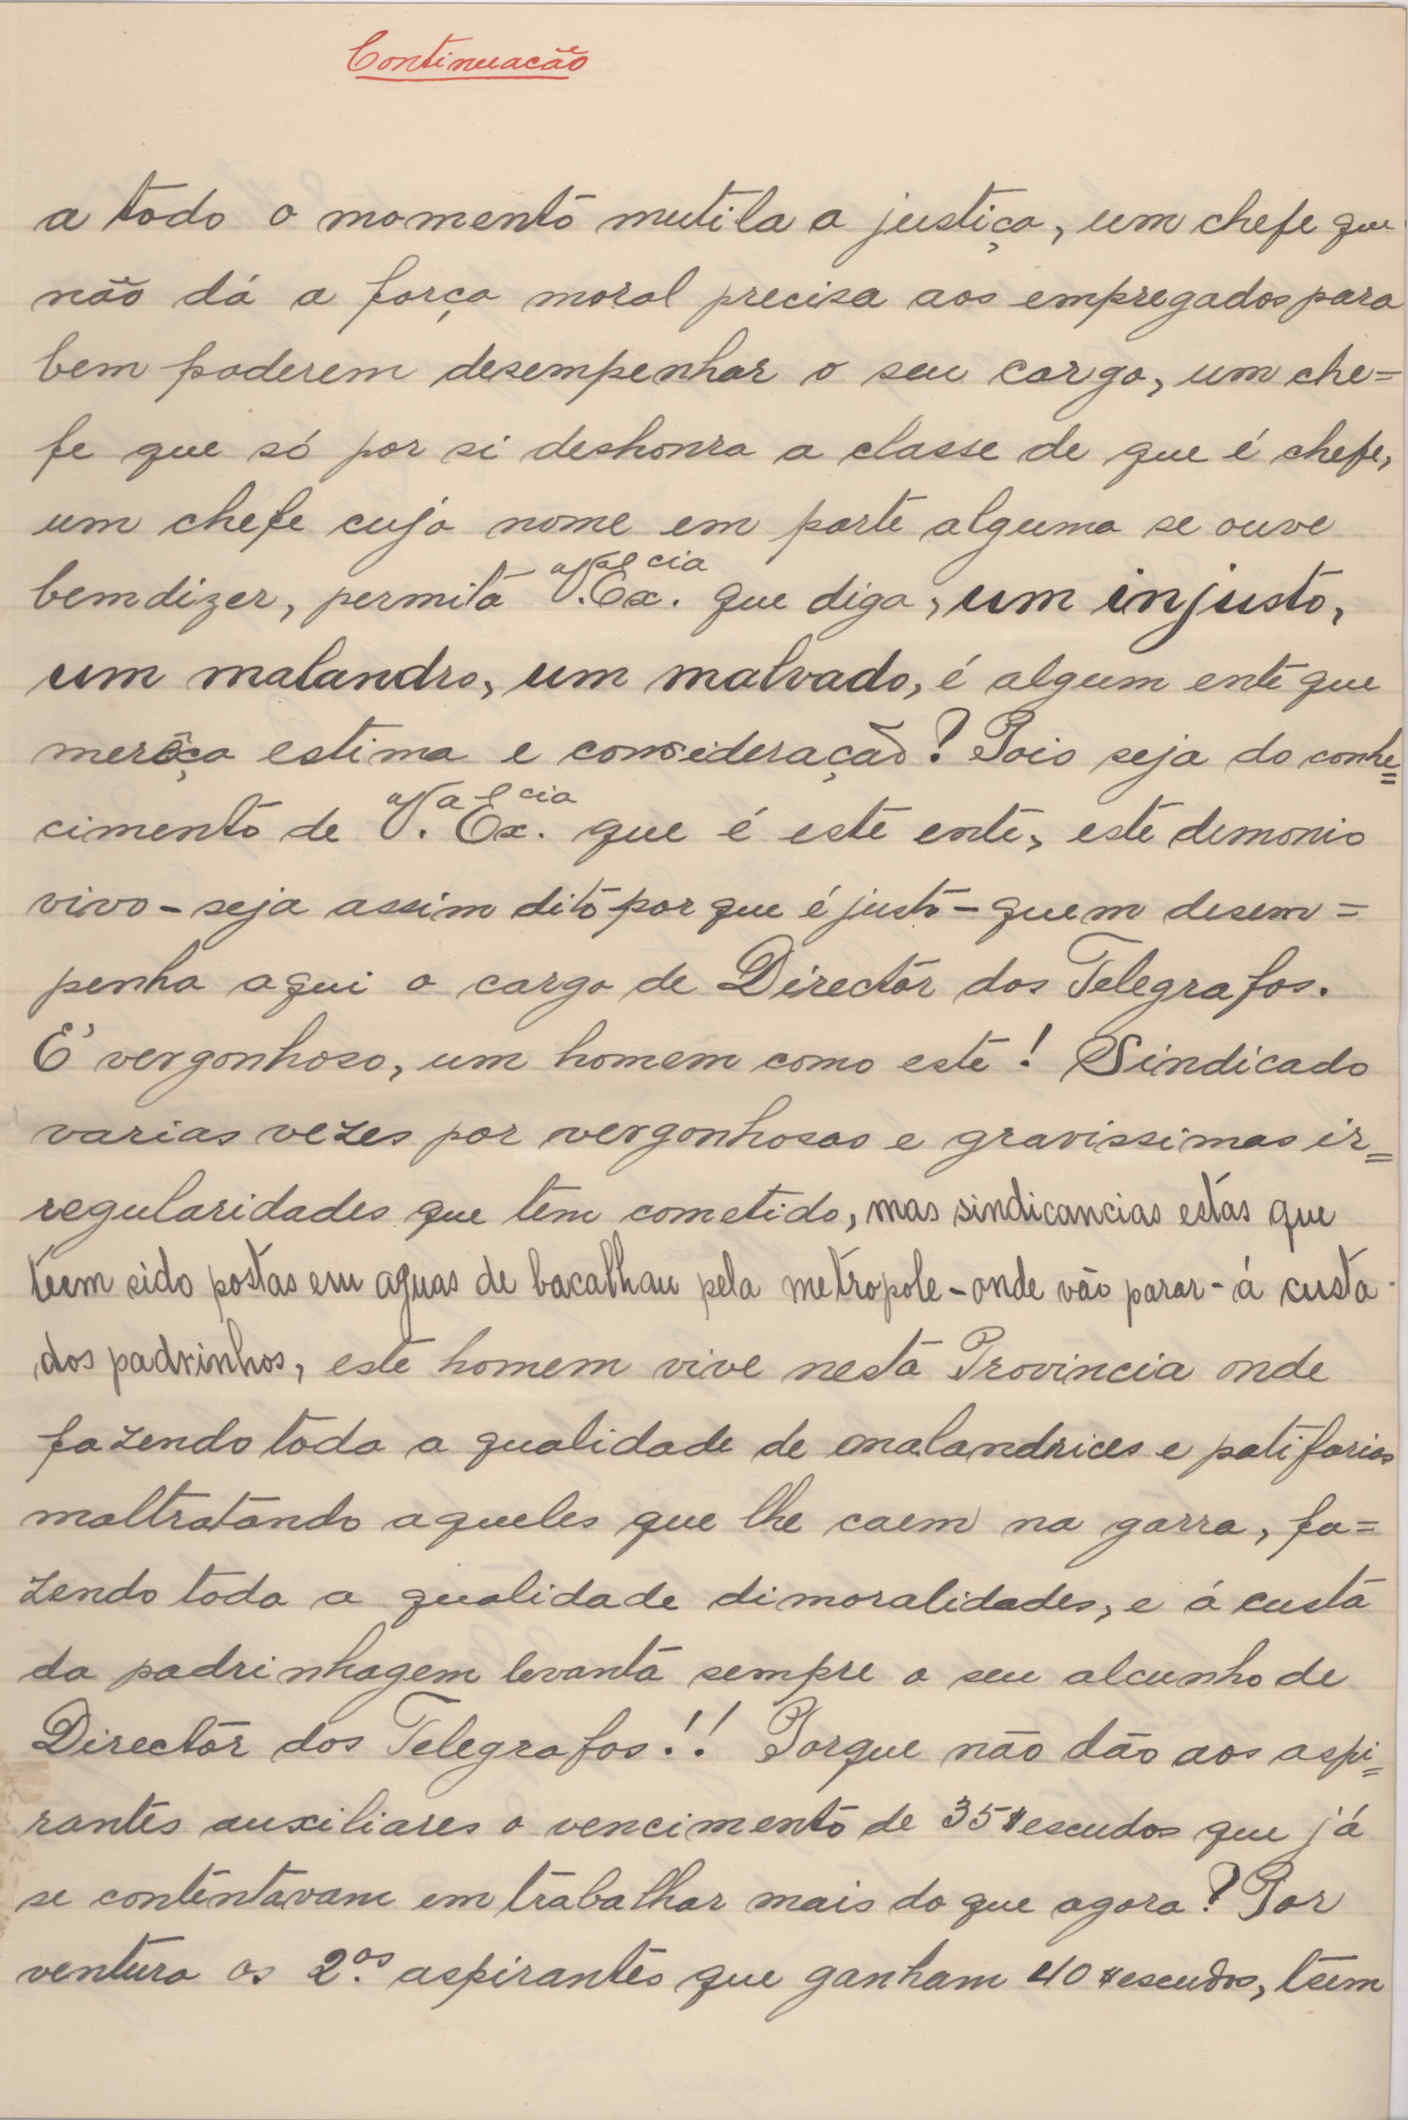 Continuacão
a todo o momento mutila a justiça, um chefe que
não dá a força moral precisa aos empregados para
bem poderem desempenhar o seu cargo, um che=
fe que só por si deshonra a classe de que é chefe,
um chefe cujo nome em parte alguma se ouve
bemdizer, permita V.ª Ex.cia que diga, um injusto,
um malandro, um malvado, é algum ente que
merêça estima e consideração? Pois seja do conhe=
cimento de V.ª Ex.cia que é este ente, este demonio
vivo - seja assim dito por que é justo - quem desem=
penha aqui o cargo de Director dos Telegrafos.
É vergonhoso, um homem como este! Sindicado
varias vezes por vergonhosas e gravissimas ir=
regularidades que tem cometido, mas sindicancias estas que
teem sido postas em aguas de bacalhau pela metropole - onde vão parar - á custa
dos padrinhos, este homem vive nesta Provincia onde
fazendo toda a qualidade de malandrices e patifarias
maltratando aqueles que lhe caem na garra, fa=
zendo toda a qualidade dimoralidades, e á custa
da padrinhagem levanta sempre o seu alcunho de
Director dos Telegrafos!! Porque não dão aos aspi=
rantes auxiliares o vencimento de 35$escudos que já
se contentavam em trabalhar mais do que agora? Por
ventura os 2.os aspirantes que ganham 40$escudos, teem